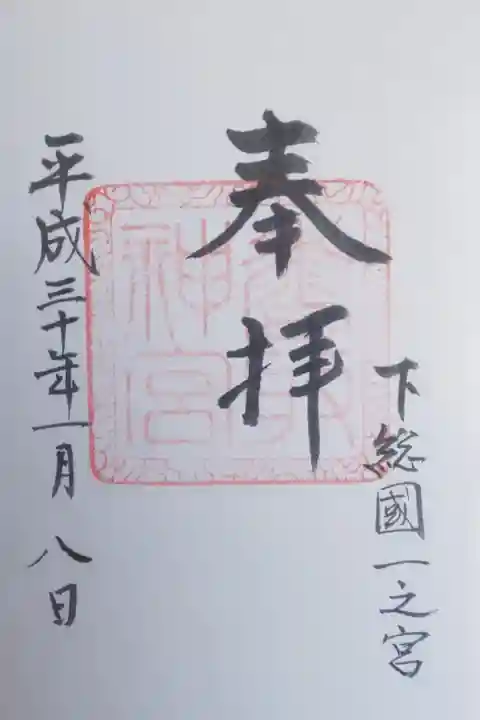 下総國一之宮
奉拝
神宮
平成三十年一月八日